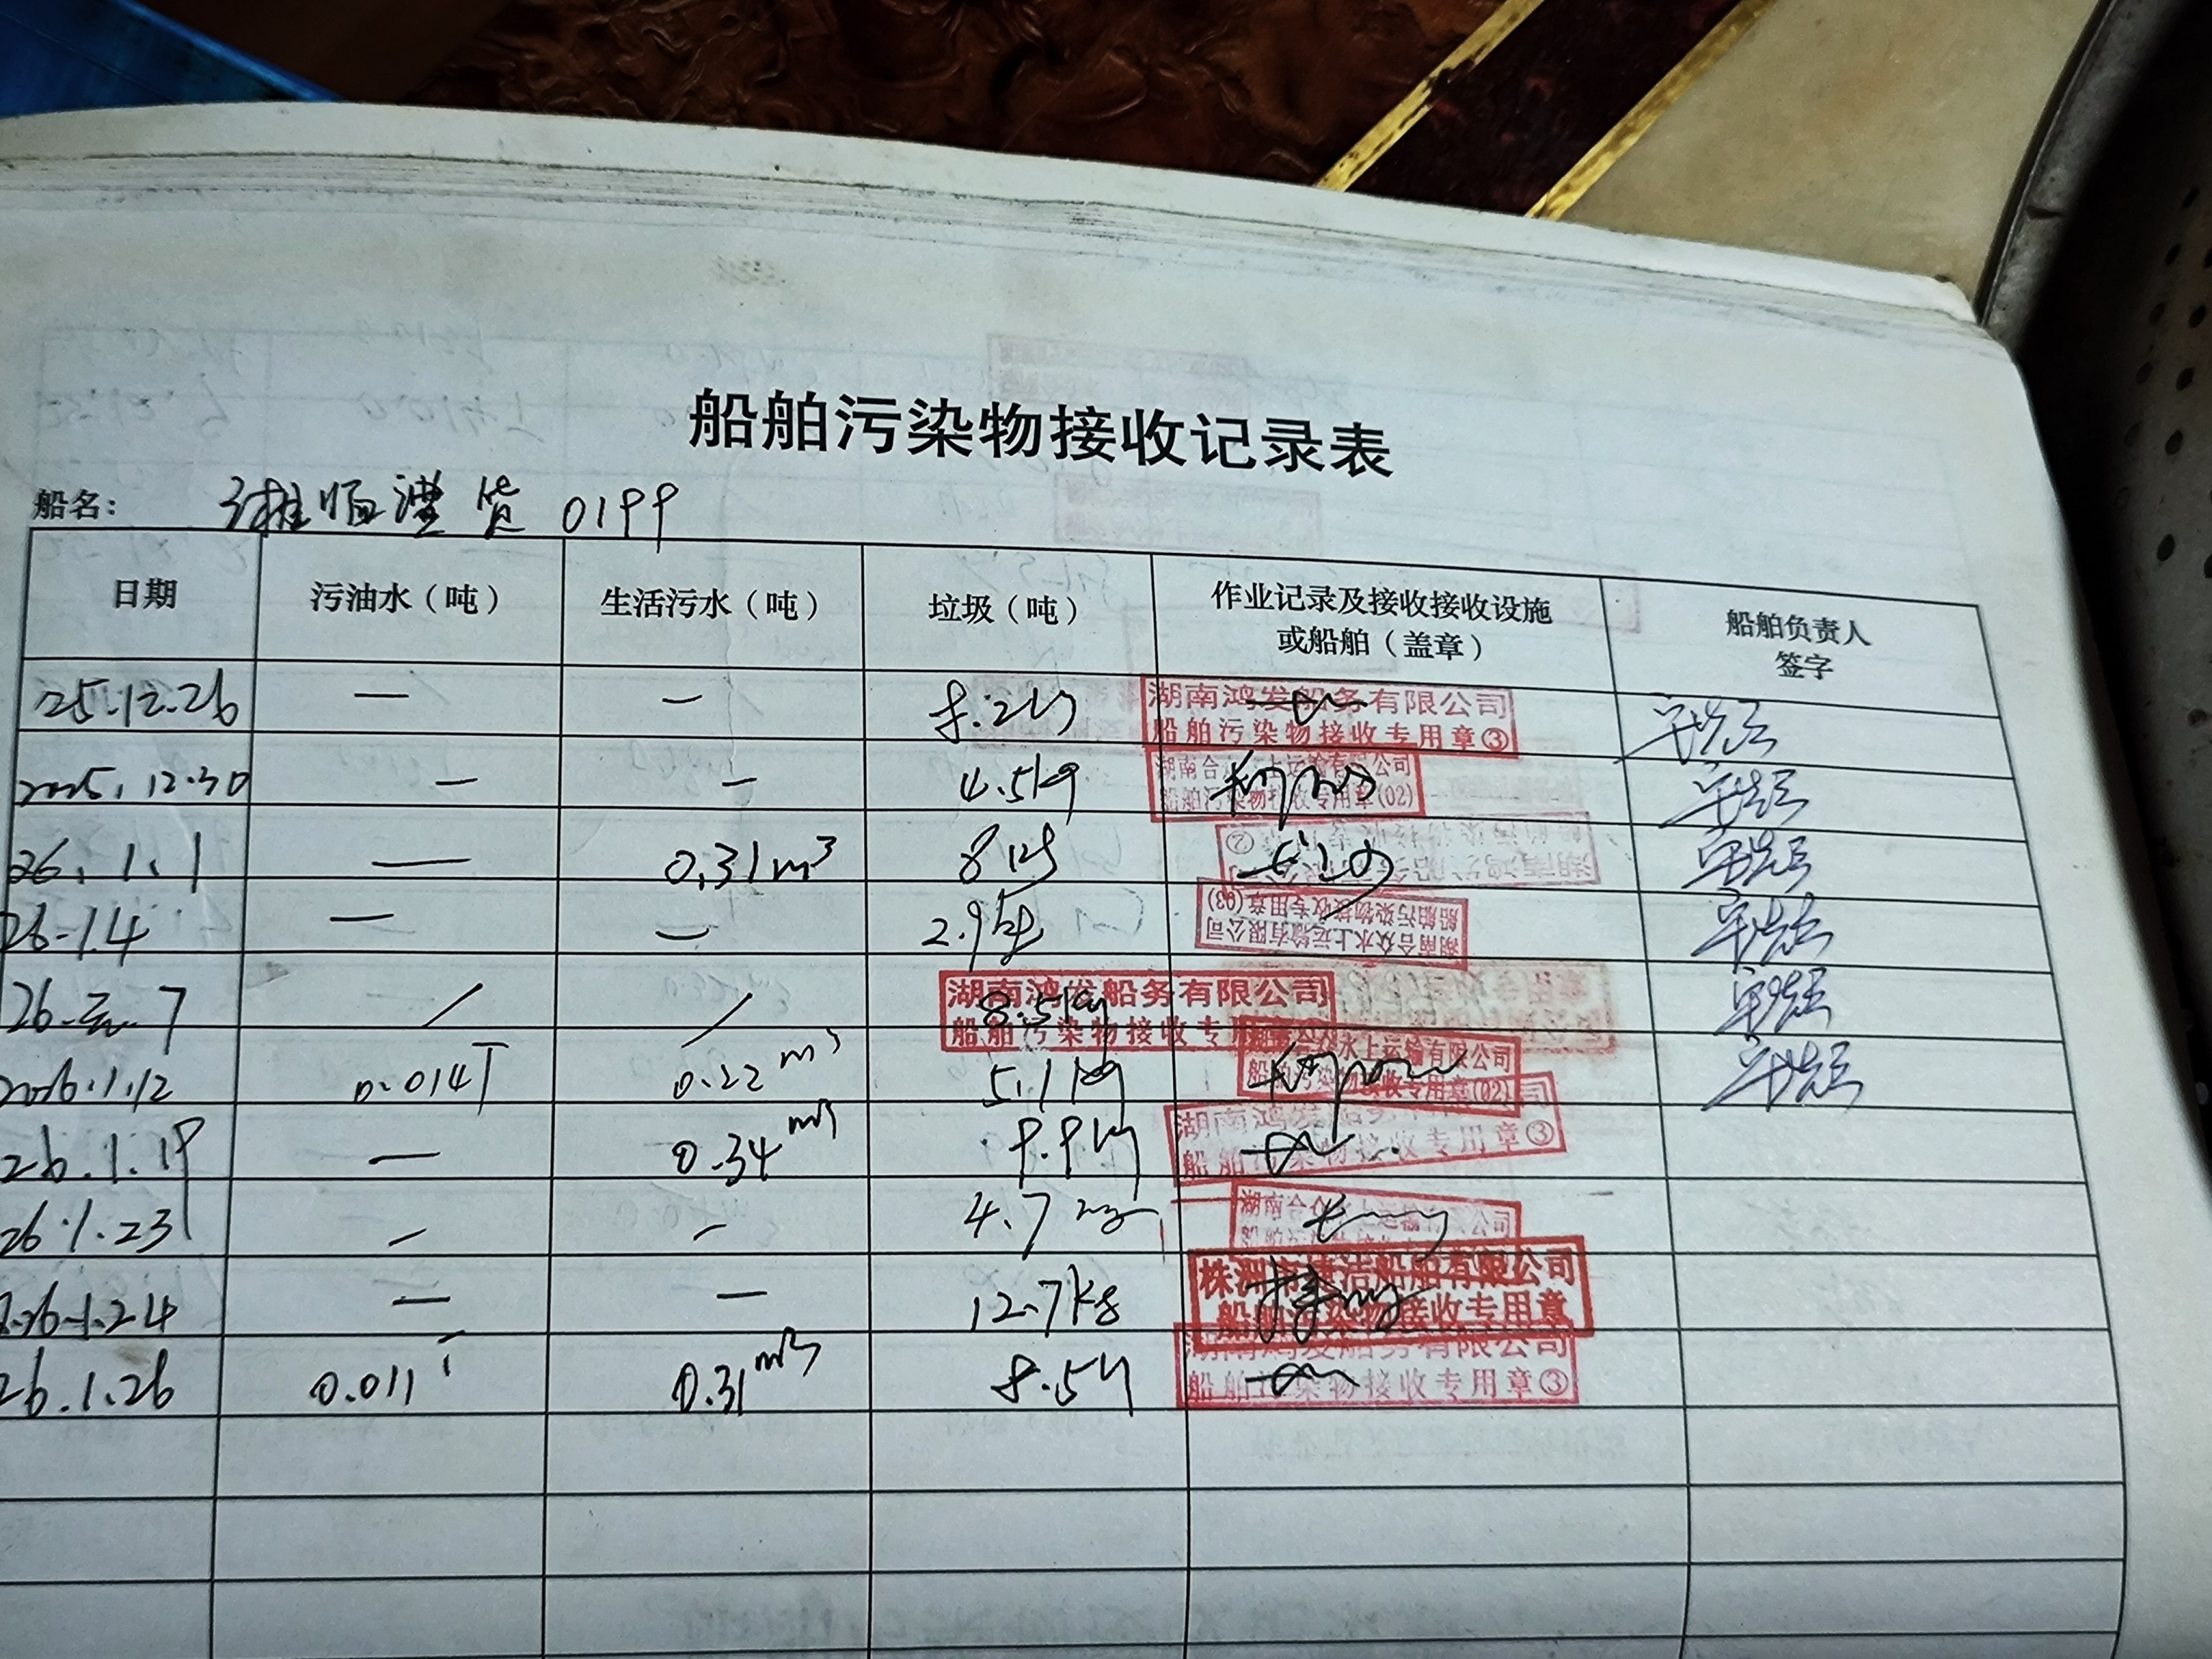 船舶污染物接收记录表
船名： 湘顺澧货 0199
日期 污油水（吨） 生活污水（吨） 垃圾（吨） 作业记录及接收接收设施或船舶（盖章） 船舶负责人签字
25.12.26 — — 8.2kg 湖南鸿发船务有限公司 船舶污染物接收专用章③
2025.12.30 — — 4.5kg 湖南合众水上运输有限公司 船舶污染物接收专用章(02)
26.1.1 — 0.31m³ 8kg 湖南鸿发船务有限公司 船舶污染物接收专用章②
26.1.4 — — 2.9kg 湖南合众水上运输有限公司 船舶污染物接收专用章(03)
26.元.7 / / 8.5kg 湖南鸿发船务有限公司 船舶污染物接收专用章
2026.1.12 0.014T 0.22m³ 5.1kg 湖南合众水上运输有限公司 船舶污染物接收专用章(02)
26.1.19 — 0.34m³ 9.9kg 湖南鸿发船务有限公司 船舶污染物接收专用章③
26.1.23 — — 4.7kg 湖南合众水上运输有限公司
2026.1.24 — — 12.7kg 株洲市 洁船舶有限公司 船舶污染物接收专用章
26.1.26 0.011T 0.31m³ 8.5kg 湖南鸿发船务有限公司 船舶污染物接收专用章③